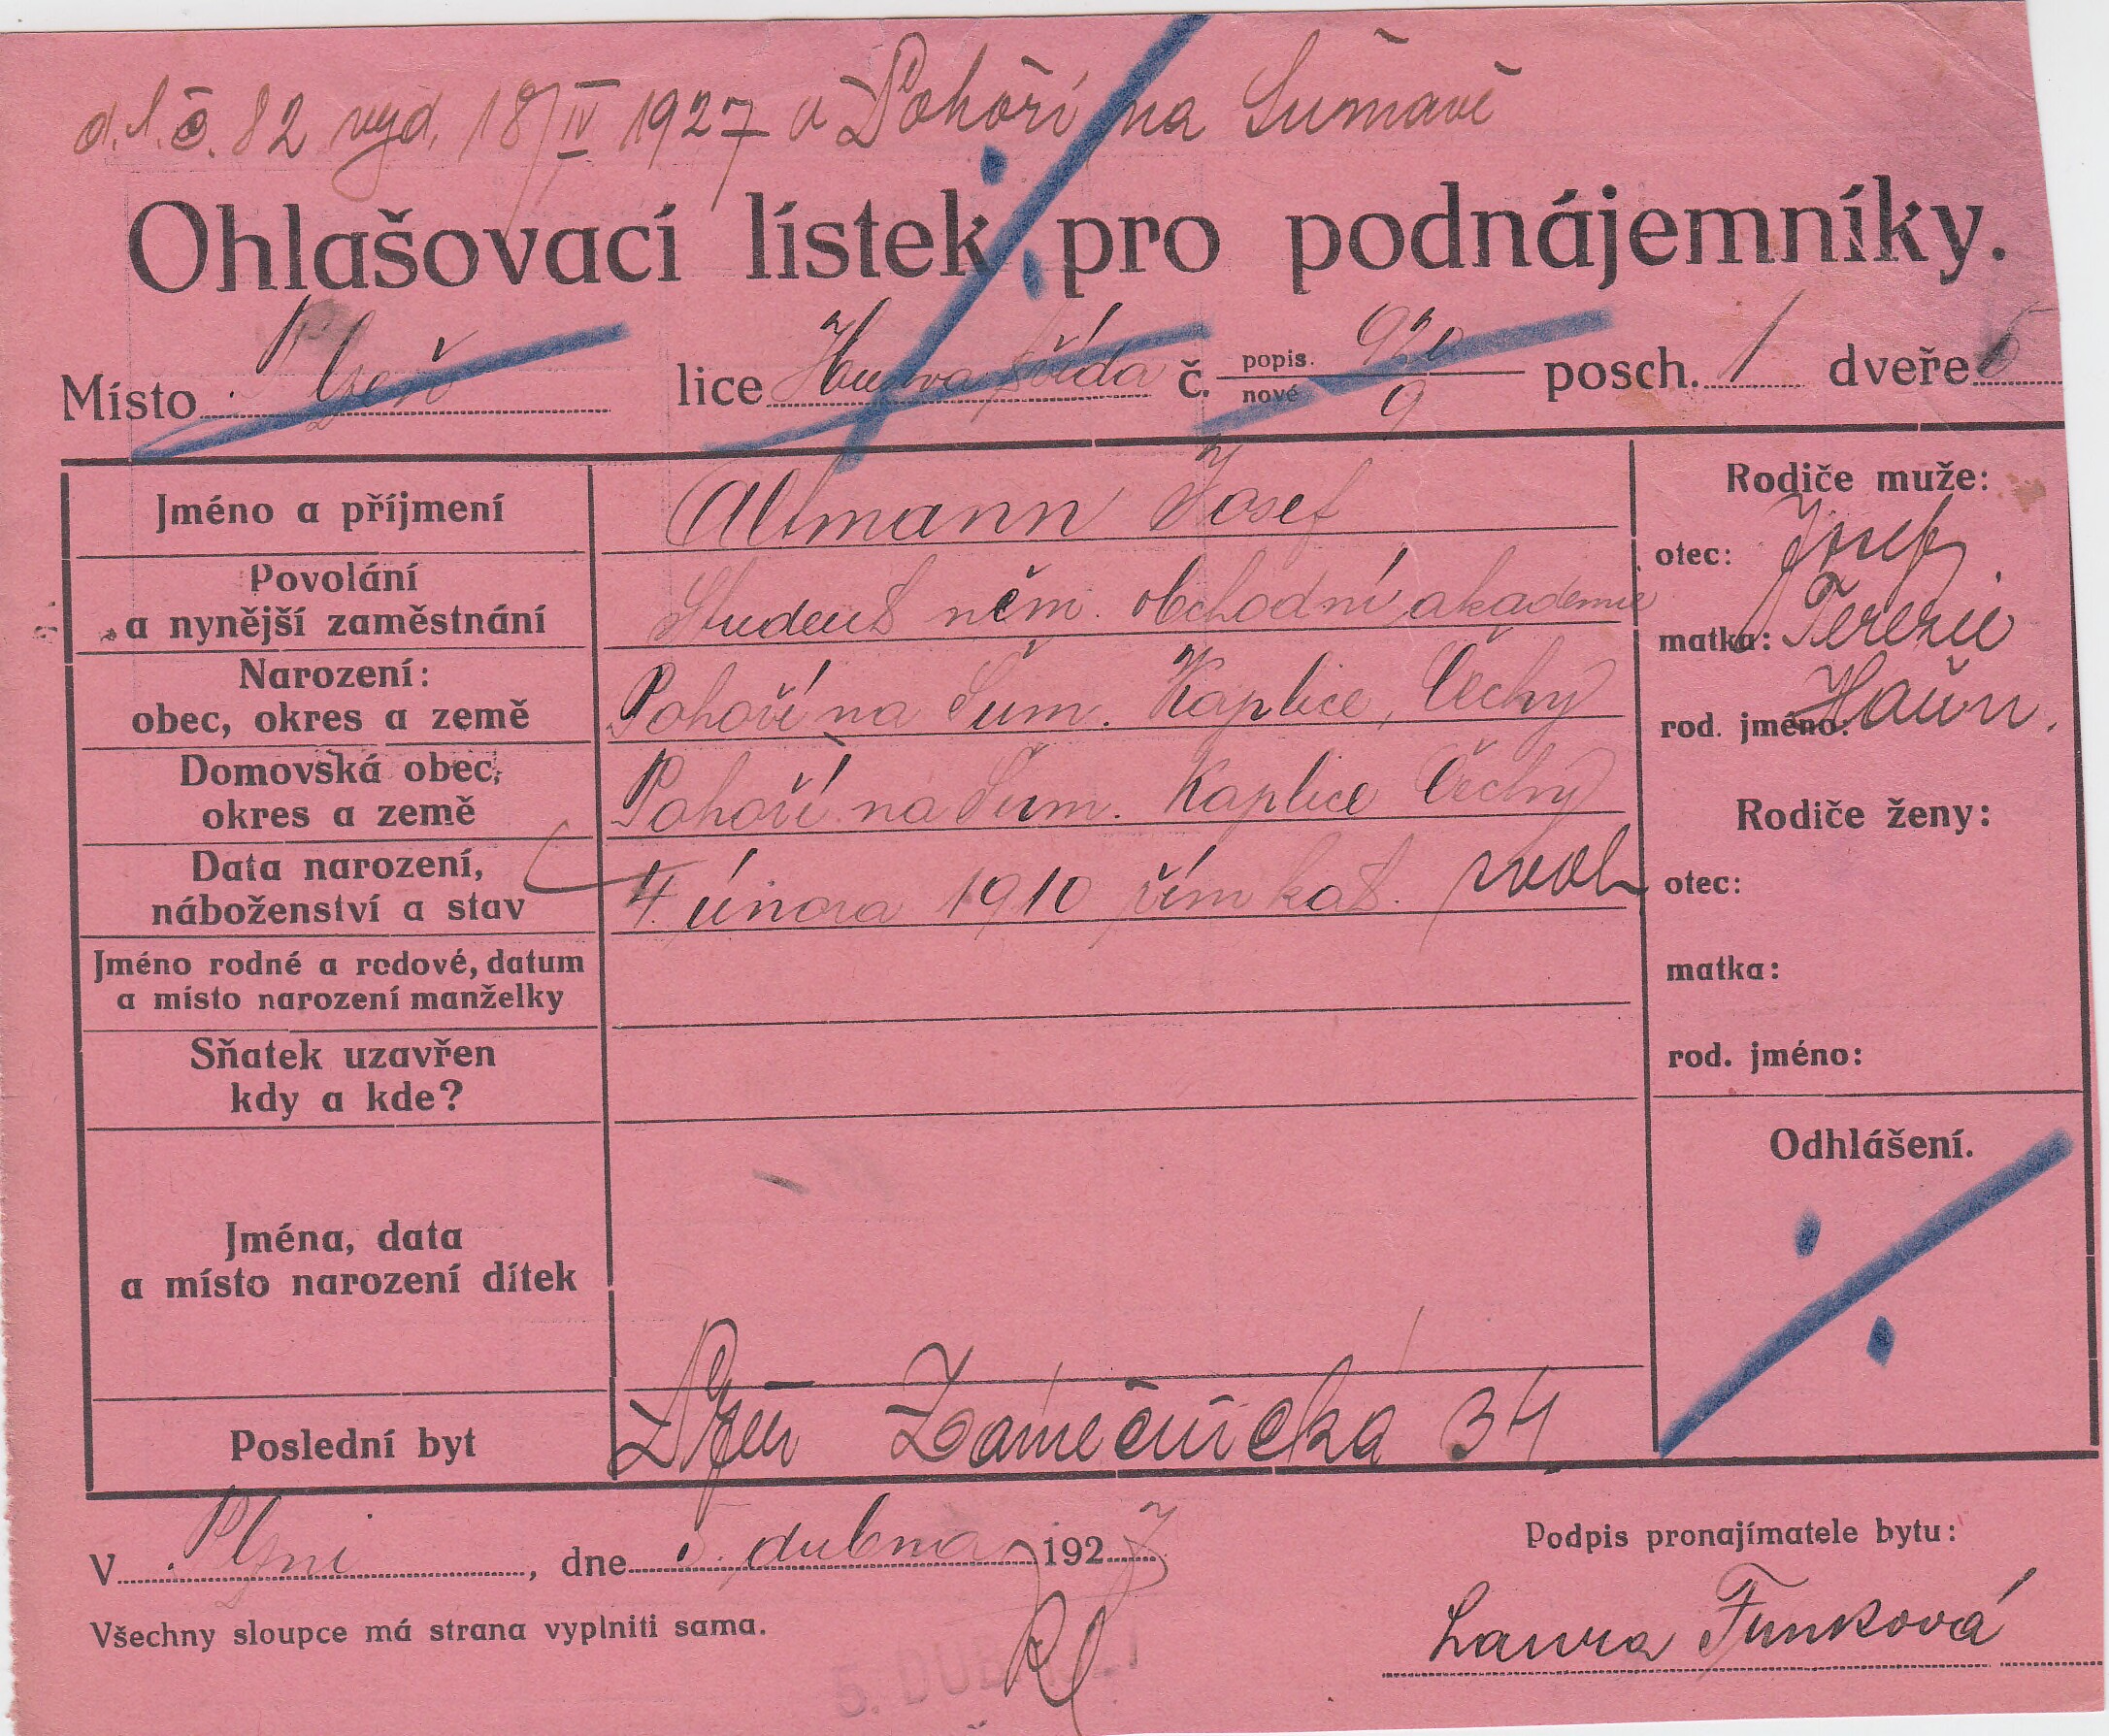 d. l. č. 82 vyd. 18/IV 1927 v Pohoří na Šumavě
Ohlašovací lístek pro podnájemníky.
Místo Plzeň lice Husova třída č. popis. 920 nové 9 posch. 1 dveře
Jméno a příjmení Altmann Josef
Povolání
a nynější zaměstnání Student něm. obchodní akademie
Narození:
obec, okres a země Pohoří na Šum. Kaplice, Čechy
Domovská obec,
okres a země Pohoří na Šum. Kaplice Čechy
Data narození,
náboženství a stav 4. února 1910 řím kat. svob
Jméno rodné a rodové, datum
a místo narození manželky
Sňatek uzavřen
kdy a kde?
Jména, data
a místo narození dítek
Poslední byt Plzeň Zámečnická 34
Rodiče muže:
otec: Josef
matka: Terezie
rod. jméno: Haun.
Rodiče ženy:
otec:
matka:
rod. jméno:
Odhlášení.
V Plzni, dne 5. dubna 1927
Podpis pronajímatele bytu:
Všechny sloupce má strana vyplniti sama.
Laura Funková
5. DUB